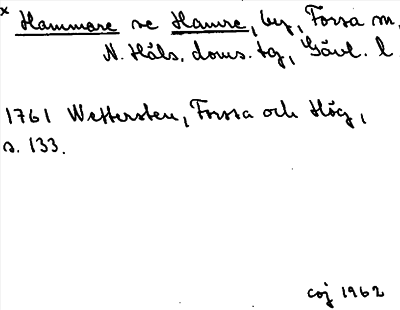 x Hammare se Hamre, by, Forsa sn,
N. Häls. doms. tg, Gävl. l
1761 Wettersten, Forssa och Hög,
s. 133.
coj 1962